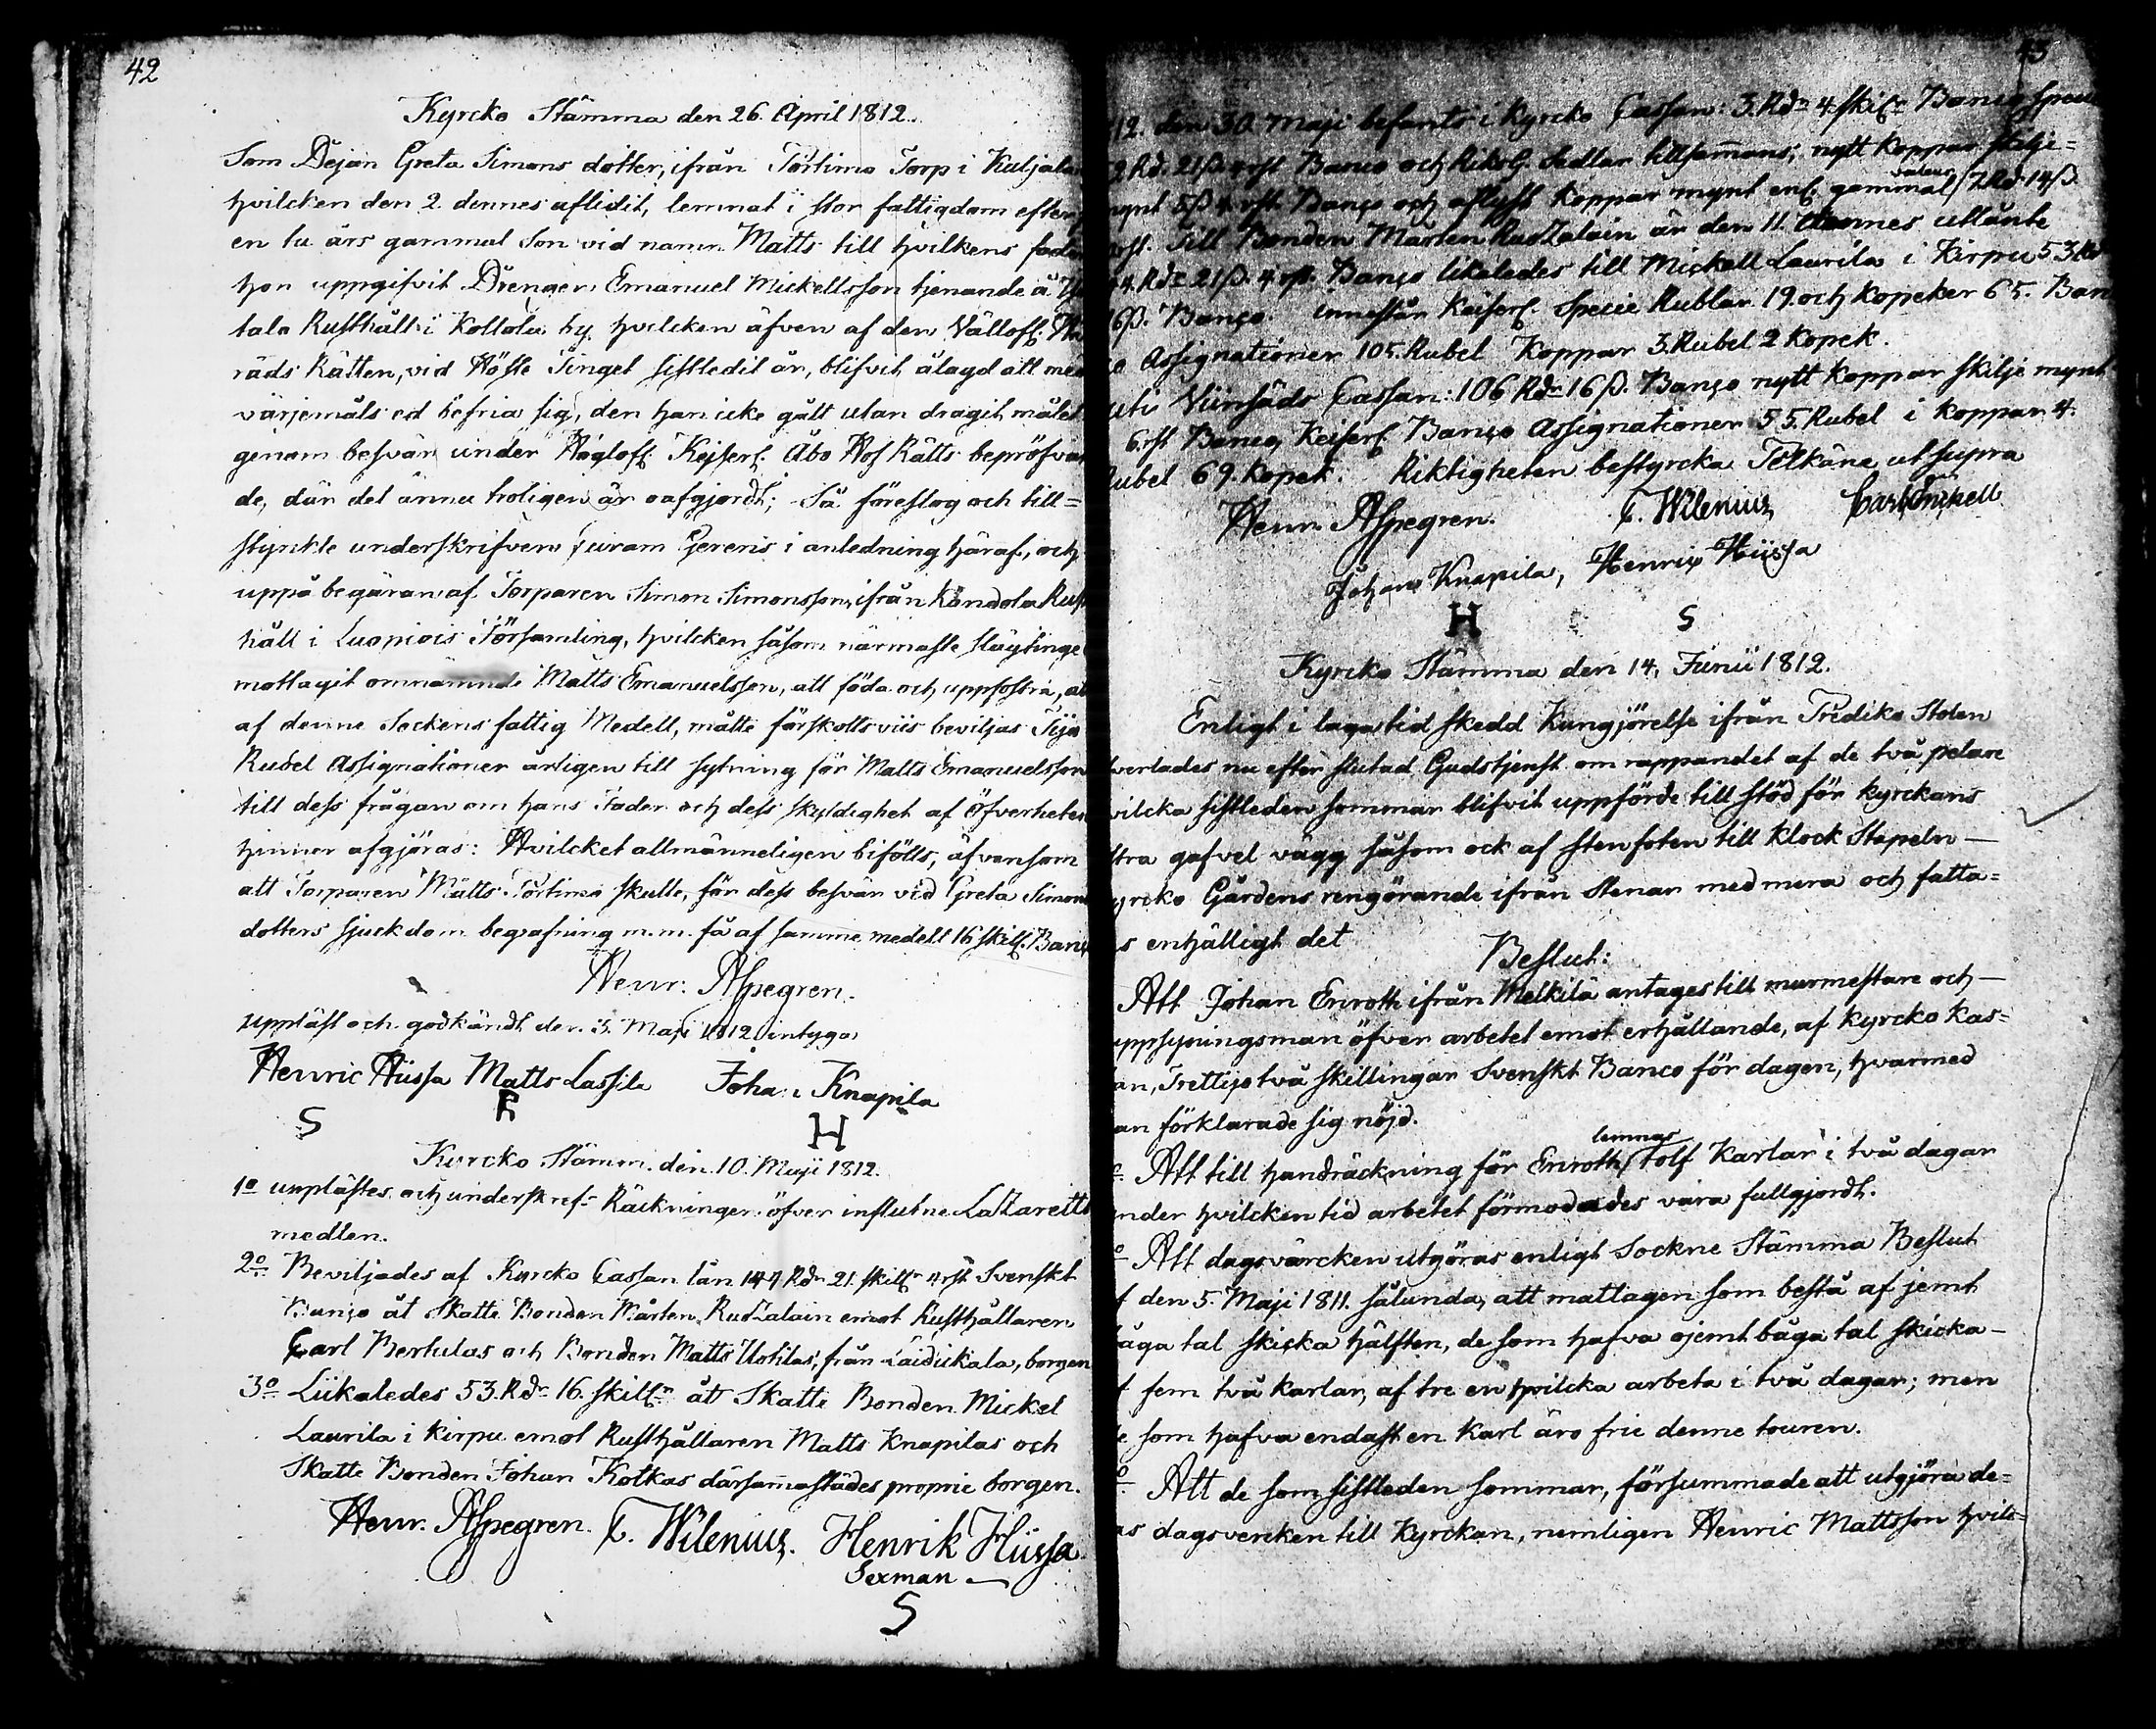 42
Kyrcko Stämma den 26. April 1812.
Som Dejan Greta Simons dotter, ifrån Törtimo Torp i Kuljala
hvilcken den 2. dennes aflidit, lemnat i stor fattigdom efter
en tu års gammal Son vid namn Matts till hvilkens fader
hon uppgifvit Drengen Emanuel Mickellsson tjenande å
tala Rusthåll i Kollola by, hvilcken äfven af den Vällofl.
räds Rätten, vid Höste Tinget sistledit år, blifvit ålagd att med
värjemåls ed befria sig, den han icke gått utan dragit målet
genom besvär under Höglofl. Kejserl. Åbo Hof Rätts bepröfvan
de, där det ännu troligen är oafgjordt; Så föreslog och till=
styrckte underskrifven curam gerens i anledning häraf, och
uppå begäran af Torparen Simon Simonsson, ifrån Kändola Rust
håll i Luopiois Församling, hvilcken såsom närmaste släyting
mottagit omnämnde Matts Emanuelsson, att föda och uppfostra, at
af denne Sockens fattig Medell, måtte förskotts viis beviljas Tijo
Rubel Assignationer årligen till sytning för Matts Emanuelsson
till dess frågan om hans Fader och dess skyldighet af Öfverheten
hinner afgjöras: Hvilcket allmänneligen bifölls, äfvensom
att Torparen Matts Törtimo skulle, för dess besvär vid Greta Simons
dotters sjuckdom begrafning m.m. få af samme medell 16 skill. Banco
Henr: Aspegren.
Uppläst och godkändt den 3. Maji 1812 intyga
Henric Hiissa Matts Lassila Joha: Knapila
S R H
Kyrcko Stämm. den 10. Maji 1812.
1o upplästes och underskrefs Räckningen öfver influtne Lazaretts
medlen.
2o Beviljades af Kyrcko Cassan lån 144 Rdr 21. skillr 4 rst Svenskt
Banco åt Skatte Bonden Mårten Rutzalain emot Rusthållaren
Carl Bertulas och Bonden Matts Uotilas, från Laidickala, borgen
3o Liikaledes 53. Rdr 16. skillr åt Skatte Bonden Mickel
Laurila i Kirpu emot Rusthållaren Matts Knapilas och
Skatte Bonden Johan Kotkas därsammastädes proprie borgen.
Henr. Aspegren. C. Wilenius. Henrik Hiissa.
Sexman
S
43
12. den 30. Maji befants i Kyrcko Cassan: 3. Rdr 4. skillr Banco
2 Rd. 21ß. rst Banco och Riksg. Sedlar tillsammans; nytt koppar skilje=
mynt 5ß 4. rst. Banco och aflyst koppar mynt enl. gammal valeur 7 Rd. 14ß.
rst. Till Bonden Mårten Rutzalain är den 11. dennes utlånte
44. Rdr 21ß. 4. rst. Banco likaledes till Mickell Laurila i Kirpu 53 Rd
16ß. Banco. innestår Keiserl. Specie Rublar 19. och Kopeker 65. Ban
co Assignationer 105. Rubel Koppar 3. Rubel 2 Kopek.
uti Viinsäds Cassan: 106 Rdr 16ß. Banco nytt koppar skilje mynt
6. rst Banco, Keiserl. Banco Assignationer 55. Rubel i koppar 4.
Rubel 69. Kopek. Riktigheten bestyrcka Pelkäne ut supra
Henr. Aspegren. C. Wilenius Carl Enckell
Johan Knapila, Henric Hiissa
H S
Kyrcko Stämma den 14. Junii 1812.
Enligt i laga tid skedd Kungjörelse ifrån Prediko Stolen
överlades nu efter slutad Gudstjenst om rappandet af de två pelare
vilcka sistleden sommar blifvit uppförde till stöd för kyrckans
stra gafvel vägg såsom ock af stenfoten till Klock Stapeln —
yrcko Gårdens rengörande ifrån stenar med mera och fatta=
s enhälligt det
Beslut:
Att Johan Enroth ifrån Melkilä antages till murmestare och —
uppsyningsman öfver arbetet emot erhållande, af Kyrcko Kas=
an, Trettijo två skillingar Svenskt Banco för dagen, hvarmed
an förklarade sig nöjd.
Att till handräckning för Enroth lemnas Tolf Karlar i två dagar
nder hvilcken tid arbetet förmodades vara fullgjordt.
Att dagsvärcken utgöras enligt Sockne Stämma Beslut
f den 5. Maji 1811. sålunda, att mattagen som bestå af jemt
båga tal skicka hälften, de som hafva ojemt båga tal skicka —
f fem två karlar, af tre en hvilcka arbeta i två dagar; men
e som hafva endast en Karl äro frie denne touren.
Att de som sistleden sommar, försummade att utgjöra de=
as dagsvercken till Kyrckan, nemligen Henric Mattsson hvilc=